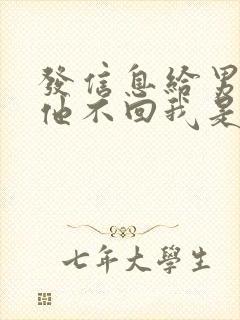 發信息給男
他不回我是
七年大學生